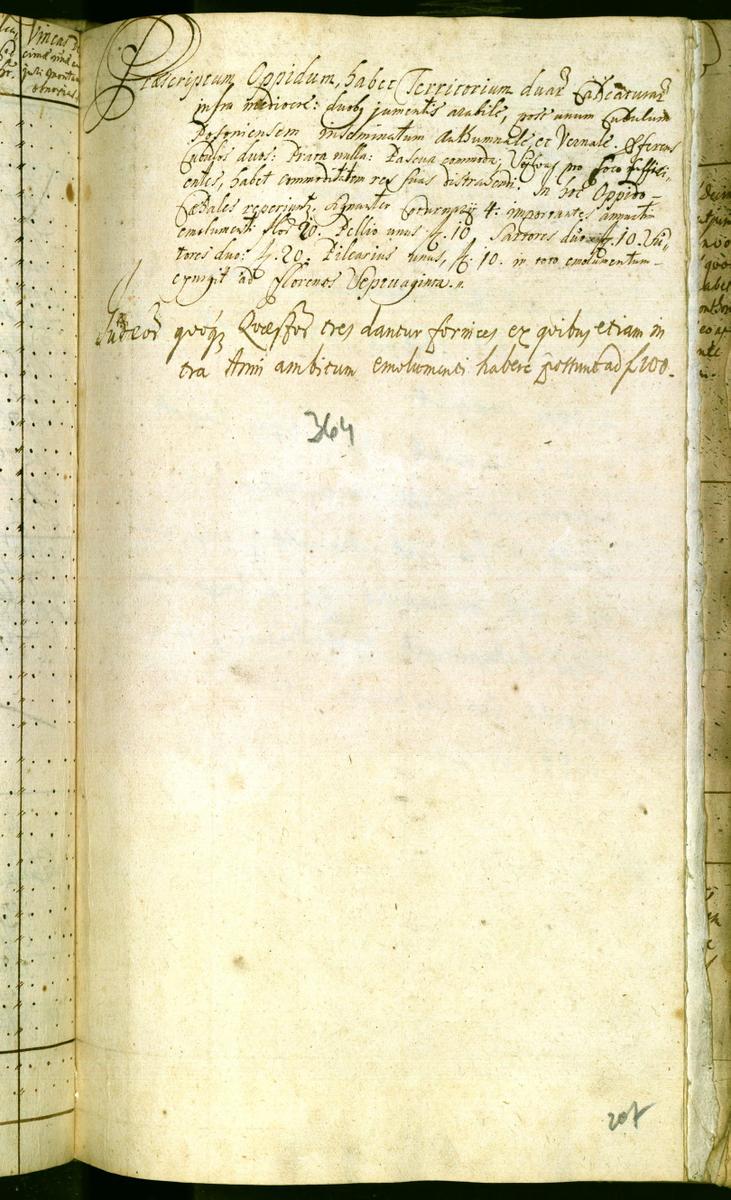 Praescriptum Oppidum, habet Territorium duar Calcaturar
infra mediocre: duobq jumentis arabile, post unum Cubulum
Posoniensem inseminatum Authumnale, et Vernale. Efferens
Cubulos duos: Prata nulla: Pascua commoda, Sylvas pro foco suffici,
entes, habet commoditatem res suas distrahendi. In hoc Oppido
Caedales reperiuntr. signanter Coturnarij 4: importantes annuatim
emolument: flos 20. Pellio unus fl. 10 Sartores duo fl. 10. Su,
tores duo: fl. 20. Pilearius unus, fl. 10. in toto emolumentum
exurgit ad florenos Septuaginta.
Judeor quoqz Quaestor tres dantur fornices ex quibus etiam in
tra Anni ambitum emolumenti habere possunt ad f 100.
364
207
Vineas